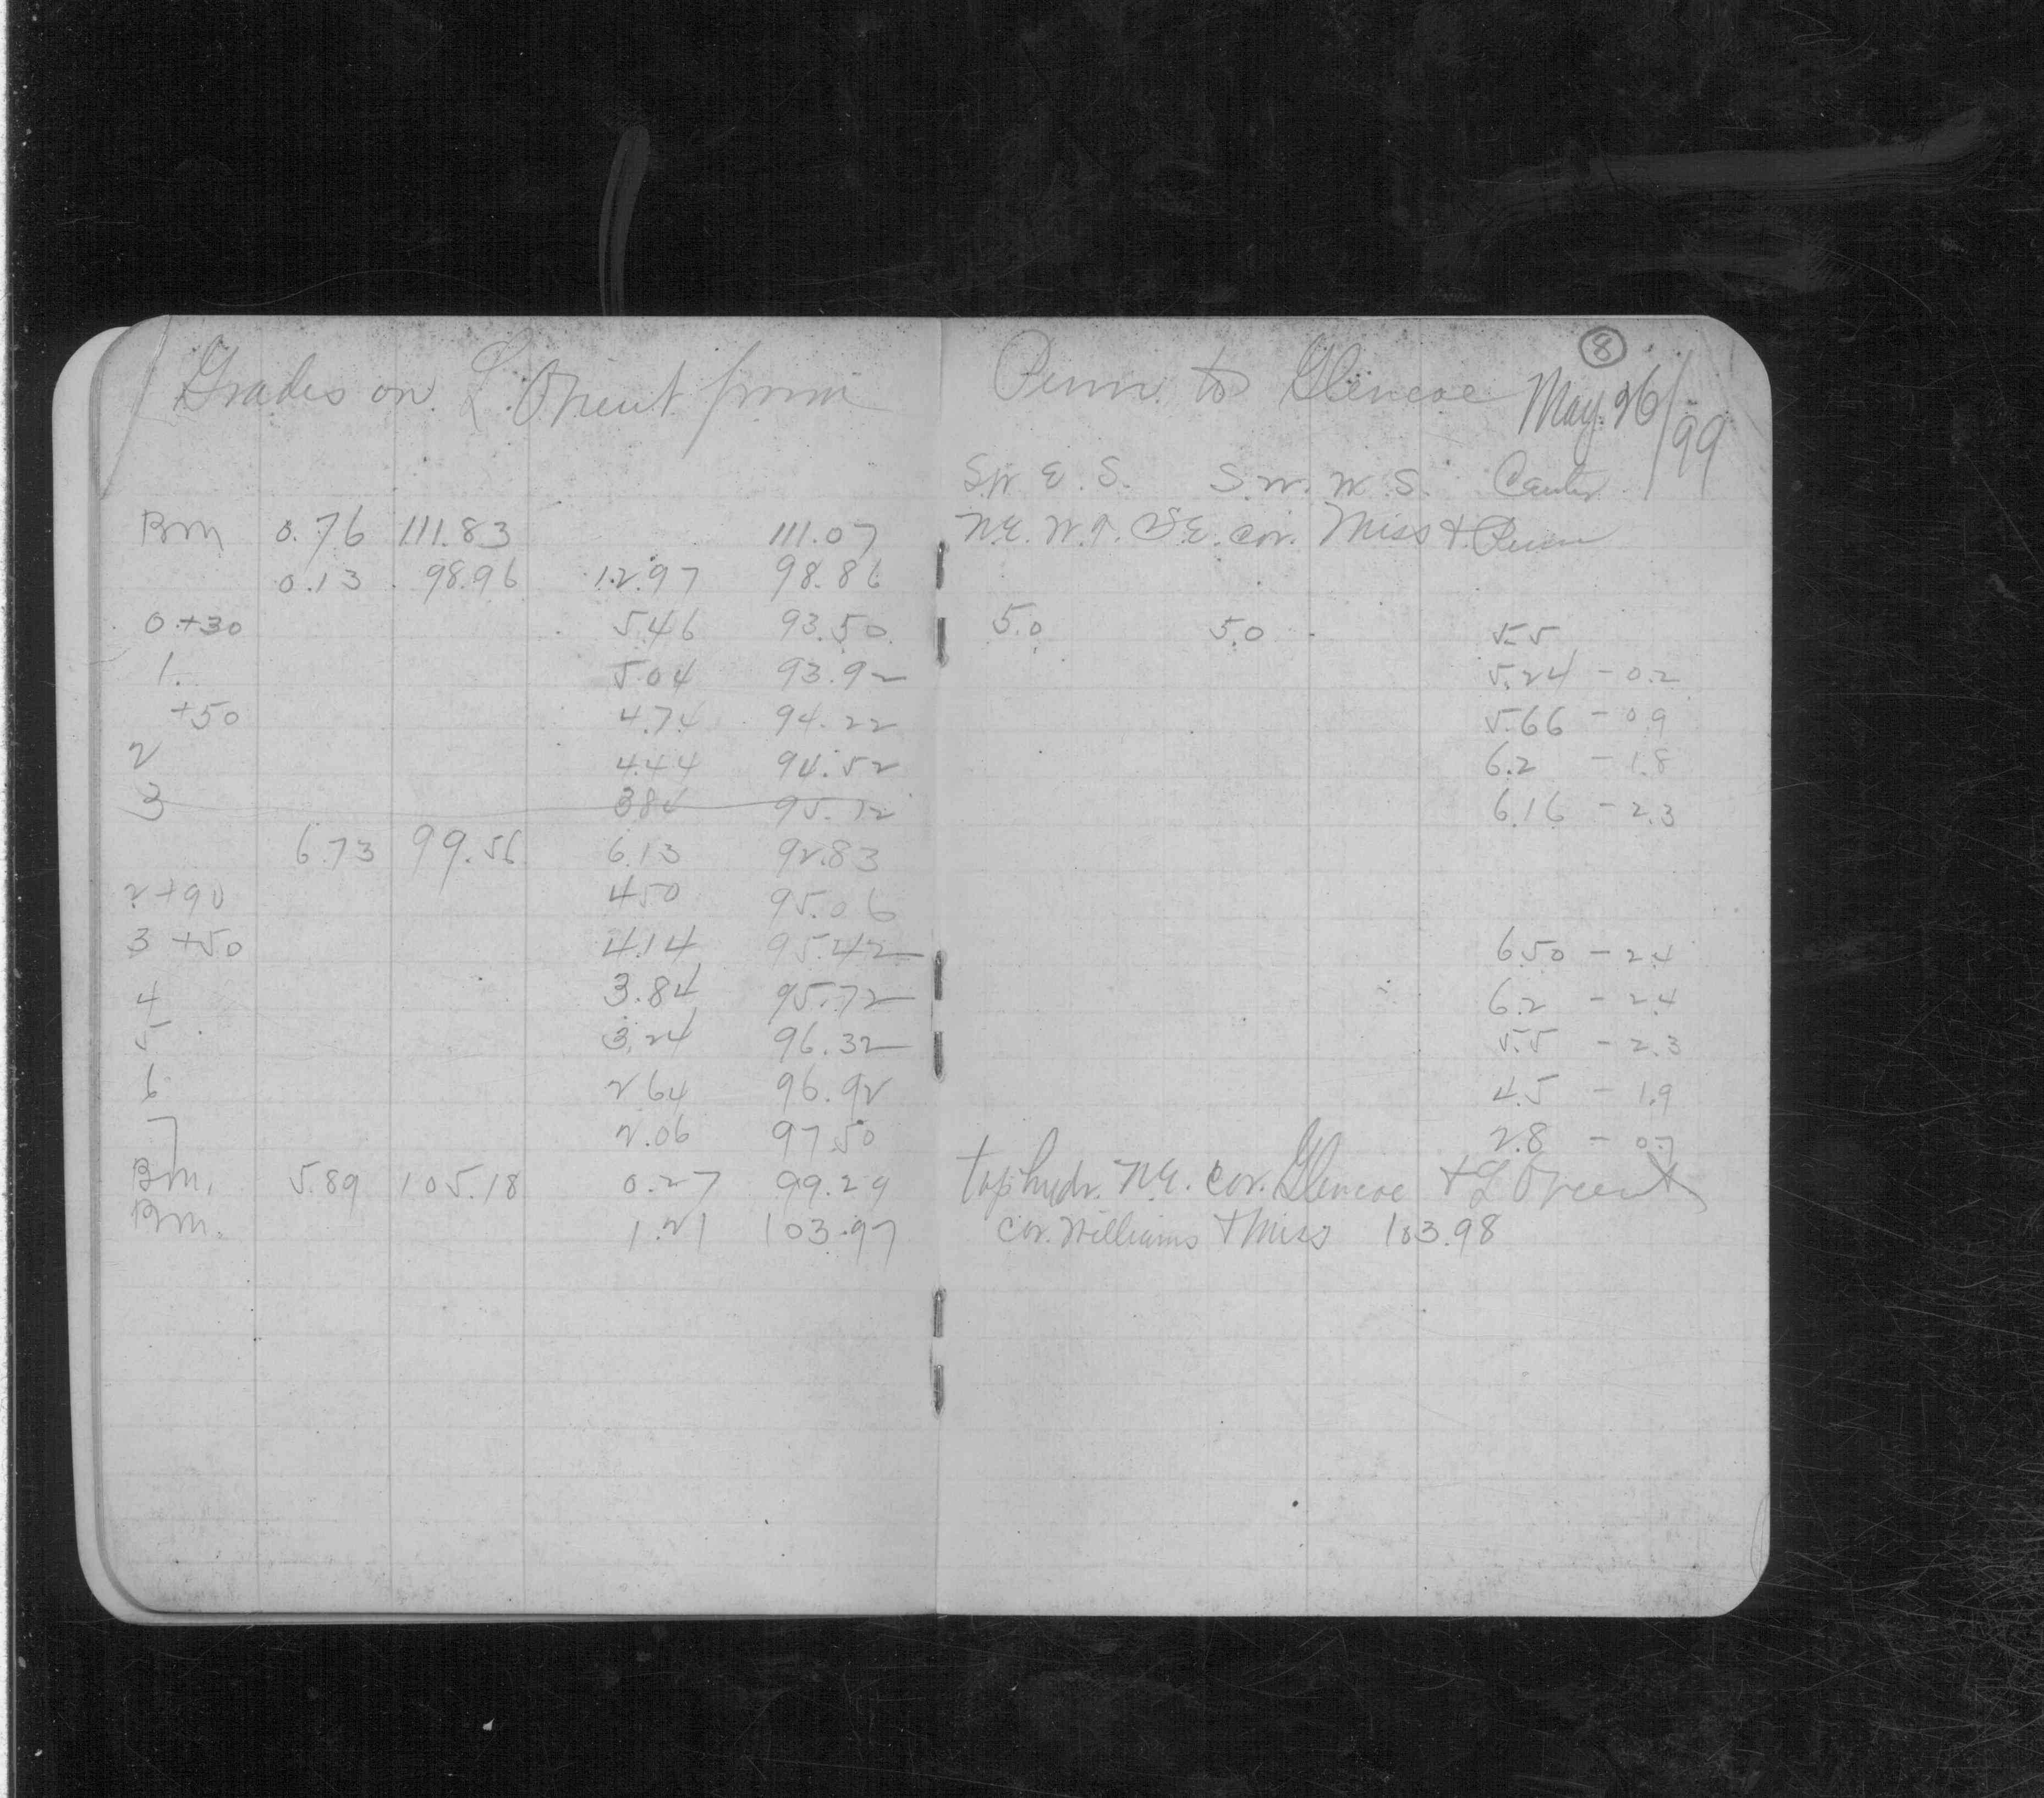 8
Grades on L'Orient from Penn. to Glencoe May. 26/99
S.W. E. S. S.W. W. S. Center
Bm 0.76 111.83 111.07 N.E. W.T. S.E. cor. Miss & Penn
0.13 98.96 12.97 98.86
0+30 5.46 93.50 5.0 5.0 5.5
1. 5.04 93.92 5.24 - 0.2
+50 4.74 94.22 5.66 - 0.9
2 4.44 94.52 6.2 - 1.8
3 3.84 95.12 6.16 - 2.3
6.73 99.56 6.13 92.83
2+90 4.50 95.06
3 +50 4.14 95.42 6.50 - 2.4
4 3.84 95.72 6.2 - 2.4
5 3.24 96.32 5.5 - 2.3
6 2.64 96.92 4.5 - 1.9
7 2.06 97.50 2.8 - 0.7
Bm. 5.89 105.18 0.27 99.29 top hydr. N.E. cor. Glencoe & L'Orient
Bm. 1.21 103.97 cor. Williams & Miss 103.98